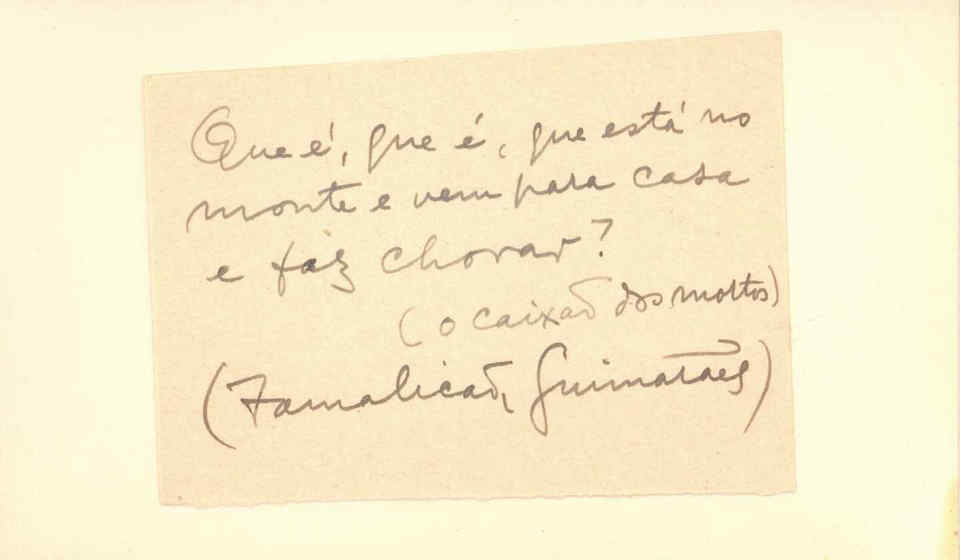 Que é, que é, que está no
monte e vem para casa
e faz chorar?
(o caixão dos mortos)
(Famalicão, Guimarães)